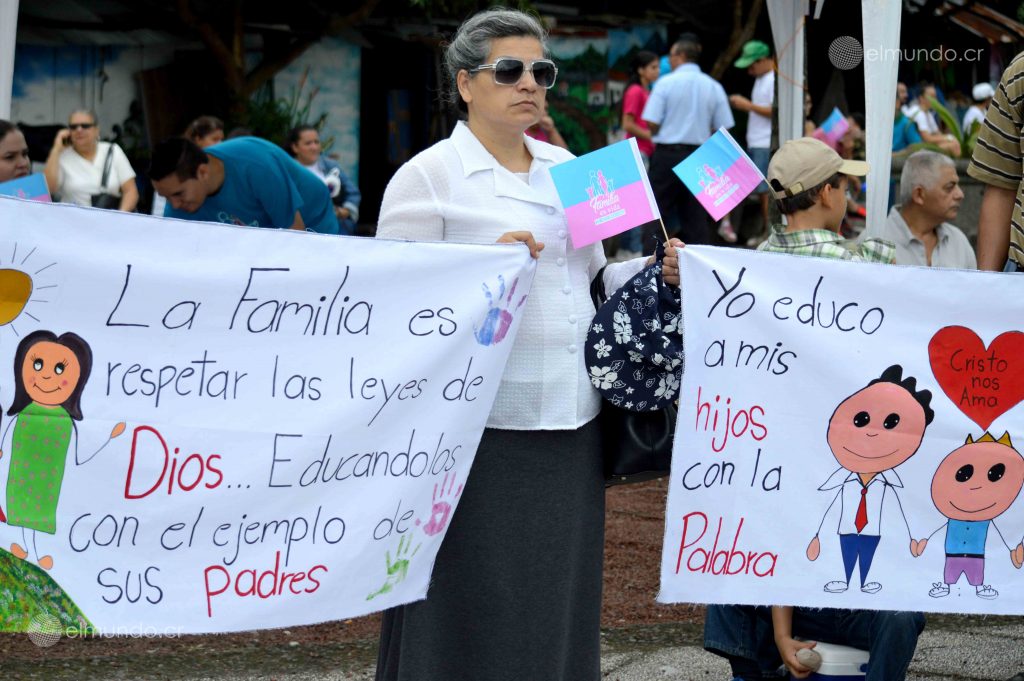 elmundo.cr
La Familia es
respetar las leyes de
Dios... Educandolos
con el ejemplo de
sus padres
Yo educo
a mis
hijos
con la
Palabra
Cristo
nos
Ama
Familia
elmundo.cr